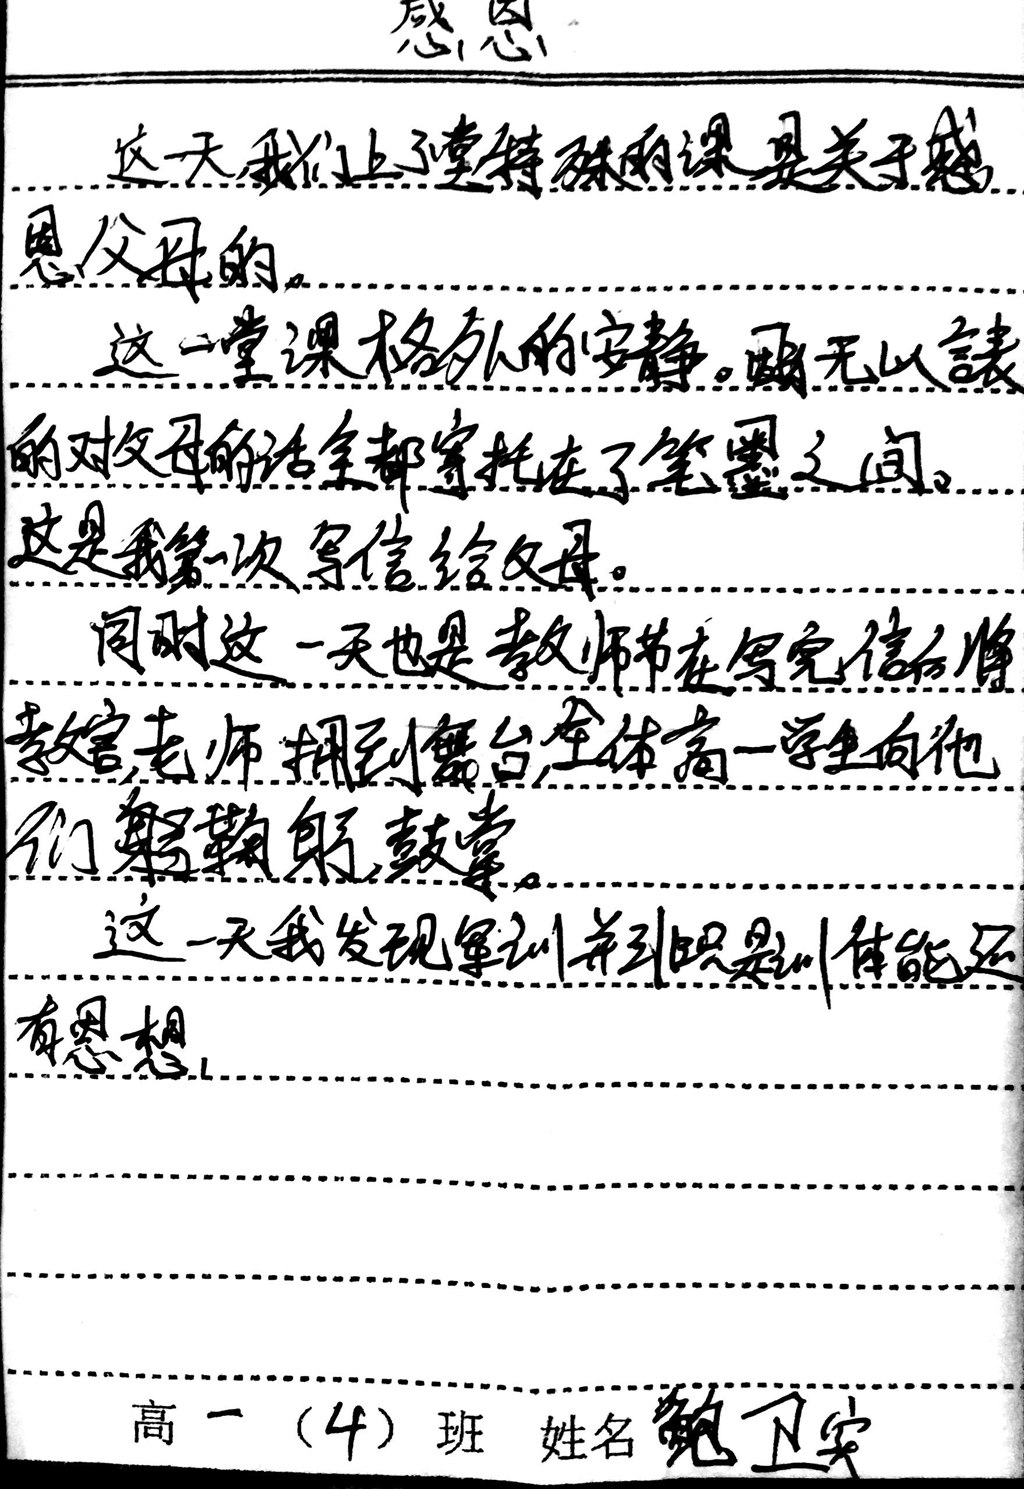 感恩
这一天,我们上了堂特殊的课是关于感
恩父母的。
这一堂课格外的安静。无以
的对父母的话全都寄托在了笔墨之间。
这是我第一次写信给父母。
同时这一天也是教师节在写完信后将
教官,老师拥到舞台,全体高一学生向他
们鞠躬,鼓掌。
这一天我发现军训并非只是训体能还
有恩想,
高一(4)班 姓名 鲍卫实